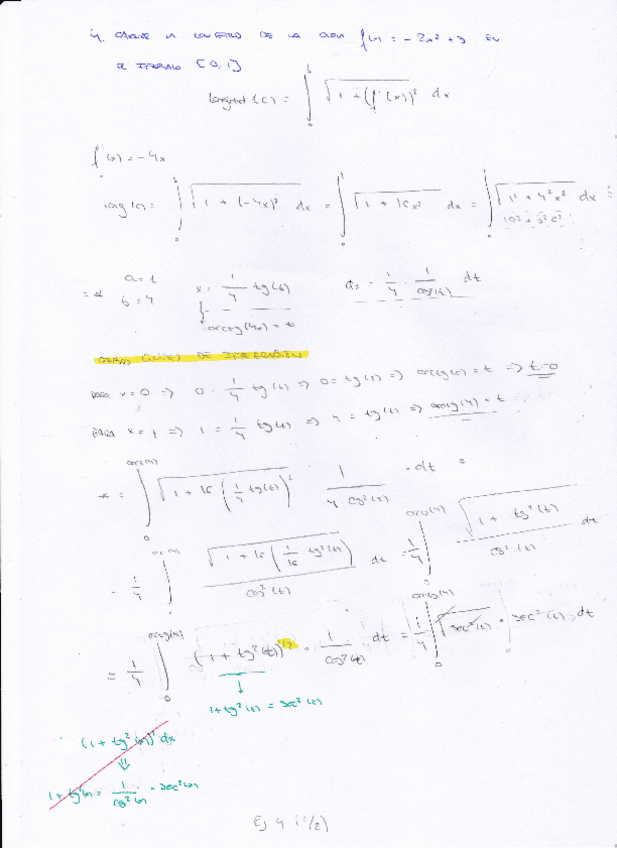 4. CALCULAR LA LONGITUD DE LA CURVA f(x) = -2x² + 3 EN
EL INTERVALO [0,1]
longitud (C) = ∫ √(1 + (f'(x))²) dx
f'(x) = -4x
long (C) = ∫₀¹ √(1 + (-4x)²) dx = ∫₀¹ √(1 + 16x²) dx = ∫₀¹ √(1² + 4²x²) dx
a = 1 x = 1/4 tg(t) dx = 1/4 · 1/cos²(t) dt
b = 4
arctg(4x) = t
CAMBIO LÍMITES DE INTEGRACIÓN
PARA x = 0 => 0 = 1/4 tg(t) => 0 = tg(t) => arctg(0) = t => t = 0
PARA x = 1 => 1 = 1/4 tg(t) => 4 = tg(t) => arctg(4) = t
* = ∫₀^arctg(4) √(1 + 16(1/4 tg(t))²) · 1/(4 cos²(t)) · dt =
= 1/4 ∫₀^arctg(4) √(1 + 16(1/16 tg²(t)))/cos²(t) dt = 1/4 ∫₀^arctg(4) √(1 + tg²(t))/cos²(t) dx
= 1/4 ∫₀^arctg(4) (1 + tg²(t))^1/2 · 1/cos²(t) dt = 1/4 ∫₀^arctg(4) √sec²(t) · sec²(t) · dt
1 + tg²(t) = sec²(t)
(1 + tg²(x))' dx
1 + tg²(x) = 1/cos²(x) = sec²(x)
Ej 4 (1/2)